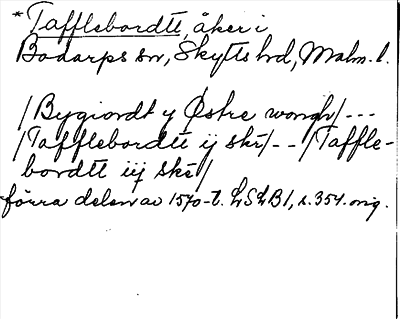 *Tafflebordtt, åker i
Bodarps sn, Skytts hd, Malm. l.
/Bygiordt y Østre wongh/---
/Tafflebordtt ij ske/--/Taffle-
bordtt iij ske/
förra delen av 1570-t. LSLB1, s. 354. orig.